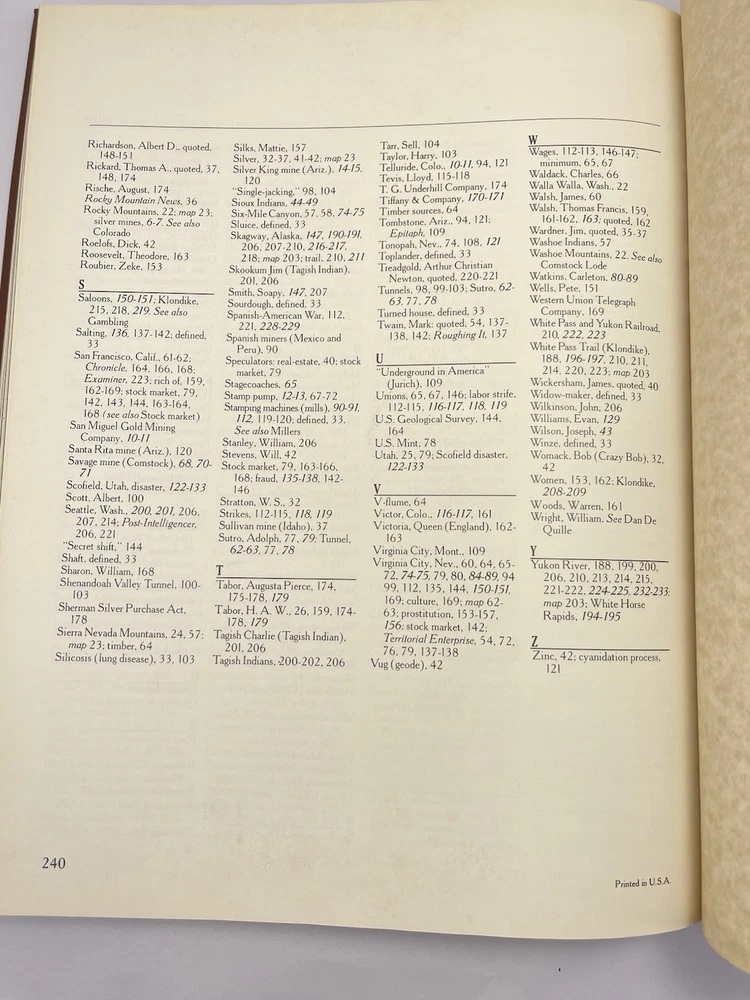 Richardson, Albert D., quoted,
148-151
Rickard, Thomas A., quoted, 37,
148, 174
Rische, August, 174
Rocky Mountain News, 36
Rocky Mountains, 22; map 23;
silver mines, 6-7. See also
Colorado
Roelofs, Dick, 42
Roosevelt, Theodore, 163
Roubier, Zeke, 153
S
Saloons, 150-151; Klondike,
215, 218, 219. See also
Gambling
Salting, 136, 137-142; defined,
33
San Francisco, Calif., 61-62;
Chronicle, 164, 166, 168;
Examiner, 223; rich of, 159,
162-169; stock market, 79,
142, 143, 144, 163-164,
168 (see also Stock market)
San Miguel Gold Mining
Company, 10-11
Santa Rita mine (Ariz.), 120
Savage mine (Comstock), 68, 70-
71
Scofield, Utah, disaster, 122-133
Scott, Albert, 100
Seattle, Wash., 200, 201, 206,
207, 214; Post-Intelligencer,
206, 221
"Secret shift," 144
Shaft, defined, 33
Sharon, William, 168
Shenandoah Valley Tunnel, 100-
103
Sherman Silver Purchase Act,
178
Sierra Nevada Mountains, 24, 57;
map 23; timber, 64
Silicosis (lung disease), 33, 103
Silks, Mattie, 157
Silver, 32-37, 41-42; map 23
Silver King mine (Ariz.), 14-15,
120
"Single-jacking," 98, 104
Sioux Indians, 44-49
Six-Mile Canyon, 57, 58, 74-75
Sluice, defined, 33
Skagway, Alaska, 147, 190-191,
206, 207-210, 216-217,
218; map 203; trail, 210, 211
Skookum Jim (Tagish Indian),
201, 206
Smith, Soapy, 147, 207
Sourdough, defined, 33
Spanish-American War, 112,
221, 228-229
Spanish miners (Mexico and
Peru), 90
Speculators: real-estate, 40; stock
market, 79
Stagecoaches, 65
Stamp pump, 12-13, 67-72
Stamping machines (mills), 90-91,
112, 119-120; defined, 33.
See also Millers
Stanley, William, 206
Stevens, Will, 42
Stock market, 79, 163-166,
168; fraud, 135-138, 142-
146
Stratton, W. S., 32
Strikes, 112-115, 118, 119
Sullivan mine (Idaho), 37
Sutro, Adolph, 77, 79; Tunnel,
62-63, 77, 78
T
Tabor, Augusta Pierce, 174,
175-178, 179
Tabor, H. A. W., 26, 159, 174-
178, 179
Tagish Charlie (Tagish Indian),
201, 206
Tagish Indians, 200-202, 206
Tarr, Sell, 104
Taylor, Harry, 103
Telluride, Colo., 10-11, 94, 121
Tevis, Lloyd, 115-118
T. G. Underhill Company, 174
Tiffany & Company, 170-171
Timber sources, 64
Tombstone, Ariz., 94, 121;
Epitaph, 109
Tonopah, Nev., 74, 108, 121
Toplander, defined, 33
Treadgold, Arthur Christian
Newton, quoted, 220-221
Tunnels, 98, 99-103; Sutro, 62-
63, 77, 78
Turned house, defined, 33
Twain, Mark: quoted, 54, 137-
138, 142; Roughing It, 137
U
"Underground in America"
(Jurich), 109
Unions, 65, 67, 146; labor strife,
112-115, 116-117, 118, 119
U.S. Geological Survey, 144,
164
U.S. Mint, 78
Utah, 25, 79; Scofield disaster,
122-133
V
V-flume, 64
Victor, Colo., 116-117, 161
Victoria, Queen (England), 162-
163
Virginia City, Mont., 109
Virginia City, Nev., 60, 64, 65-
72, 74-75, 79, 80, 84-89, 94
99, 112, 135, 144, 150-151,
169; culture, 169; map 62-
63; prostitution, 153-157,
156; stock market, 142;
Territorial Enterprise, 54, 72,
76, 79, 137-138
Vug (geode), 42
W
Wages, 112-113, 146-147;
minimum, 65, 67
Waldack, Charles, 66
Walla Walla, Wash., 22
Walsh, James, 60
Walsh, Thomas Francis, 159,
161-162, 163; quoted, 162
Wardner, Jim, quoted, 35-37
Washoe Indians, 57
Washoe Mountains, 22. See also
Comstock Lode
Watkins, Carleton, 80-89
Wells, Pete, 151
Western Union Telegraph
Company, 169
White Pass and Yukon Railroad,
210, 222, 223
White Pass Trail (Klondike),
188, 196-197, 210, 211,
214, 220, 223; map 203
Wickersham, James, quoted, 40
Widow-maker, defined, 33
Wilkinson, John, 206
Williams, Evan, 129
Wilson, Joseph, 43
Winze, defined, 33
Womack, Bob (Crazy Bob), 32,
42
Women, 153, 162; Klondike,
208-209
Woods, Warren, 161
Wright, William. See Dan De
Quille
Y
Yukon River, 188, 199, 200,
206, 210, 213, 214, 215,
221-222, 224-225, 232-233;
map 203; White Horse
Rapids, 194-195
Z
Zinc, 42; cyanidation process,
121
240
Printed in U.S.A.